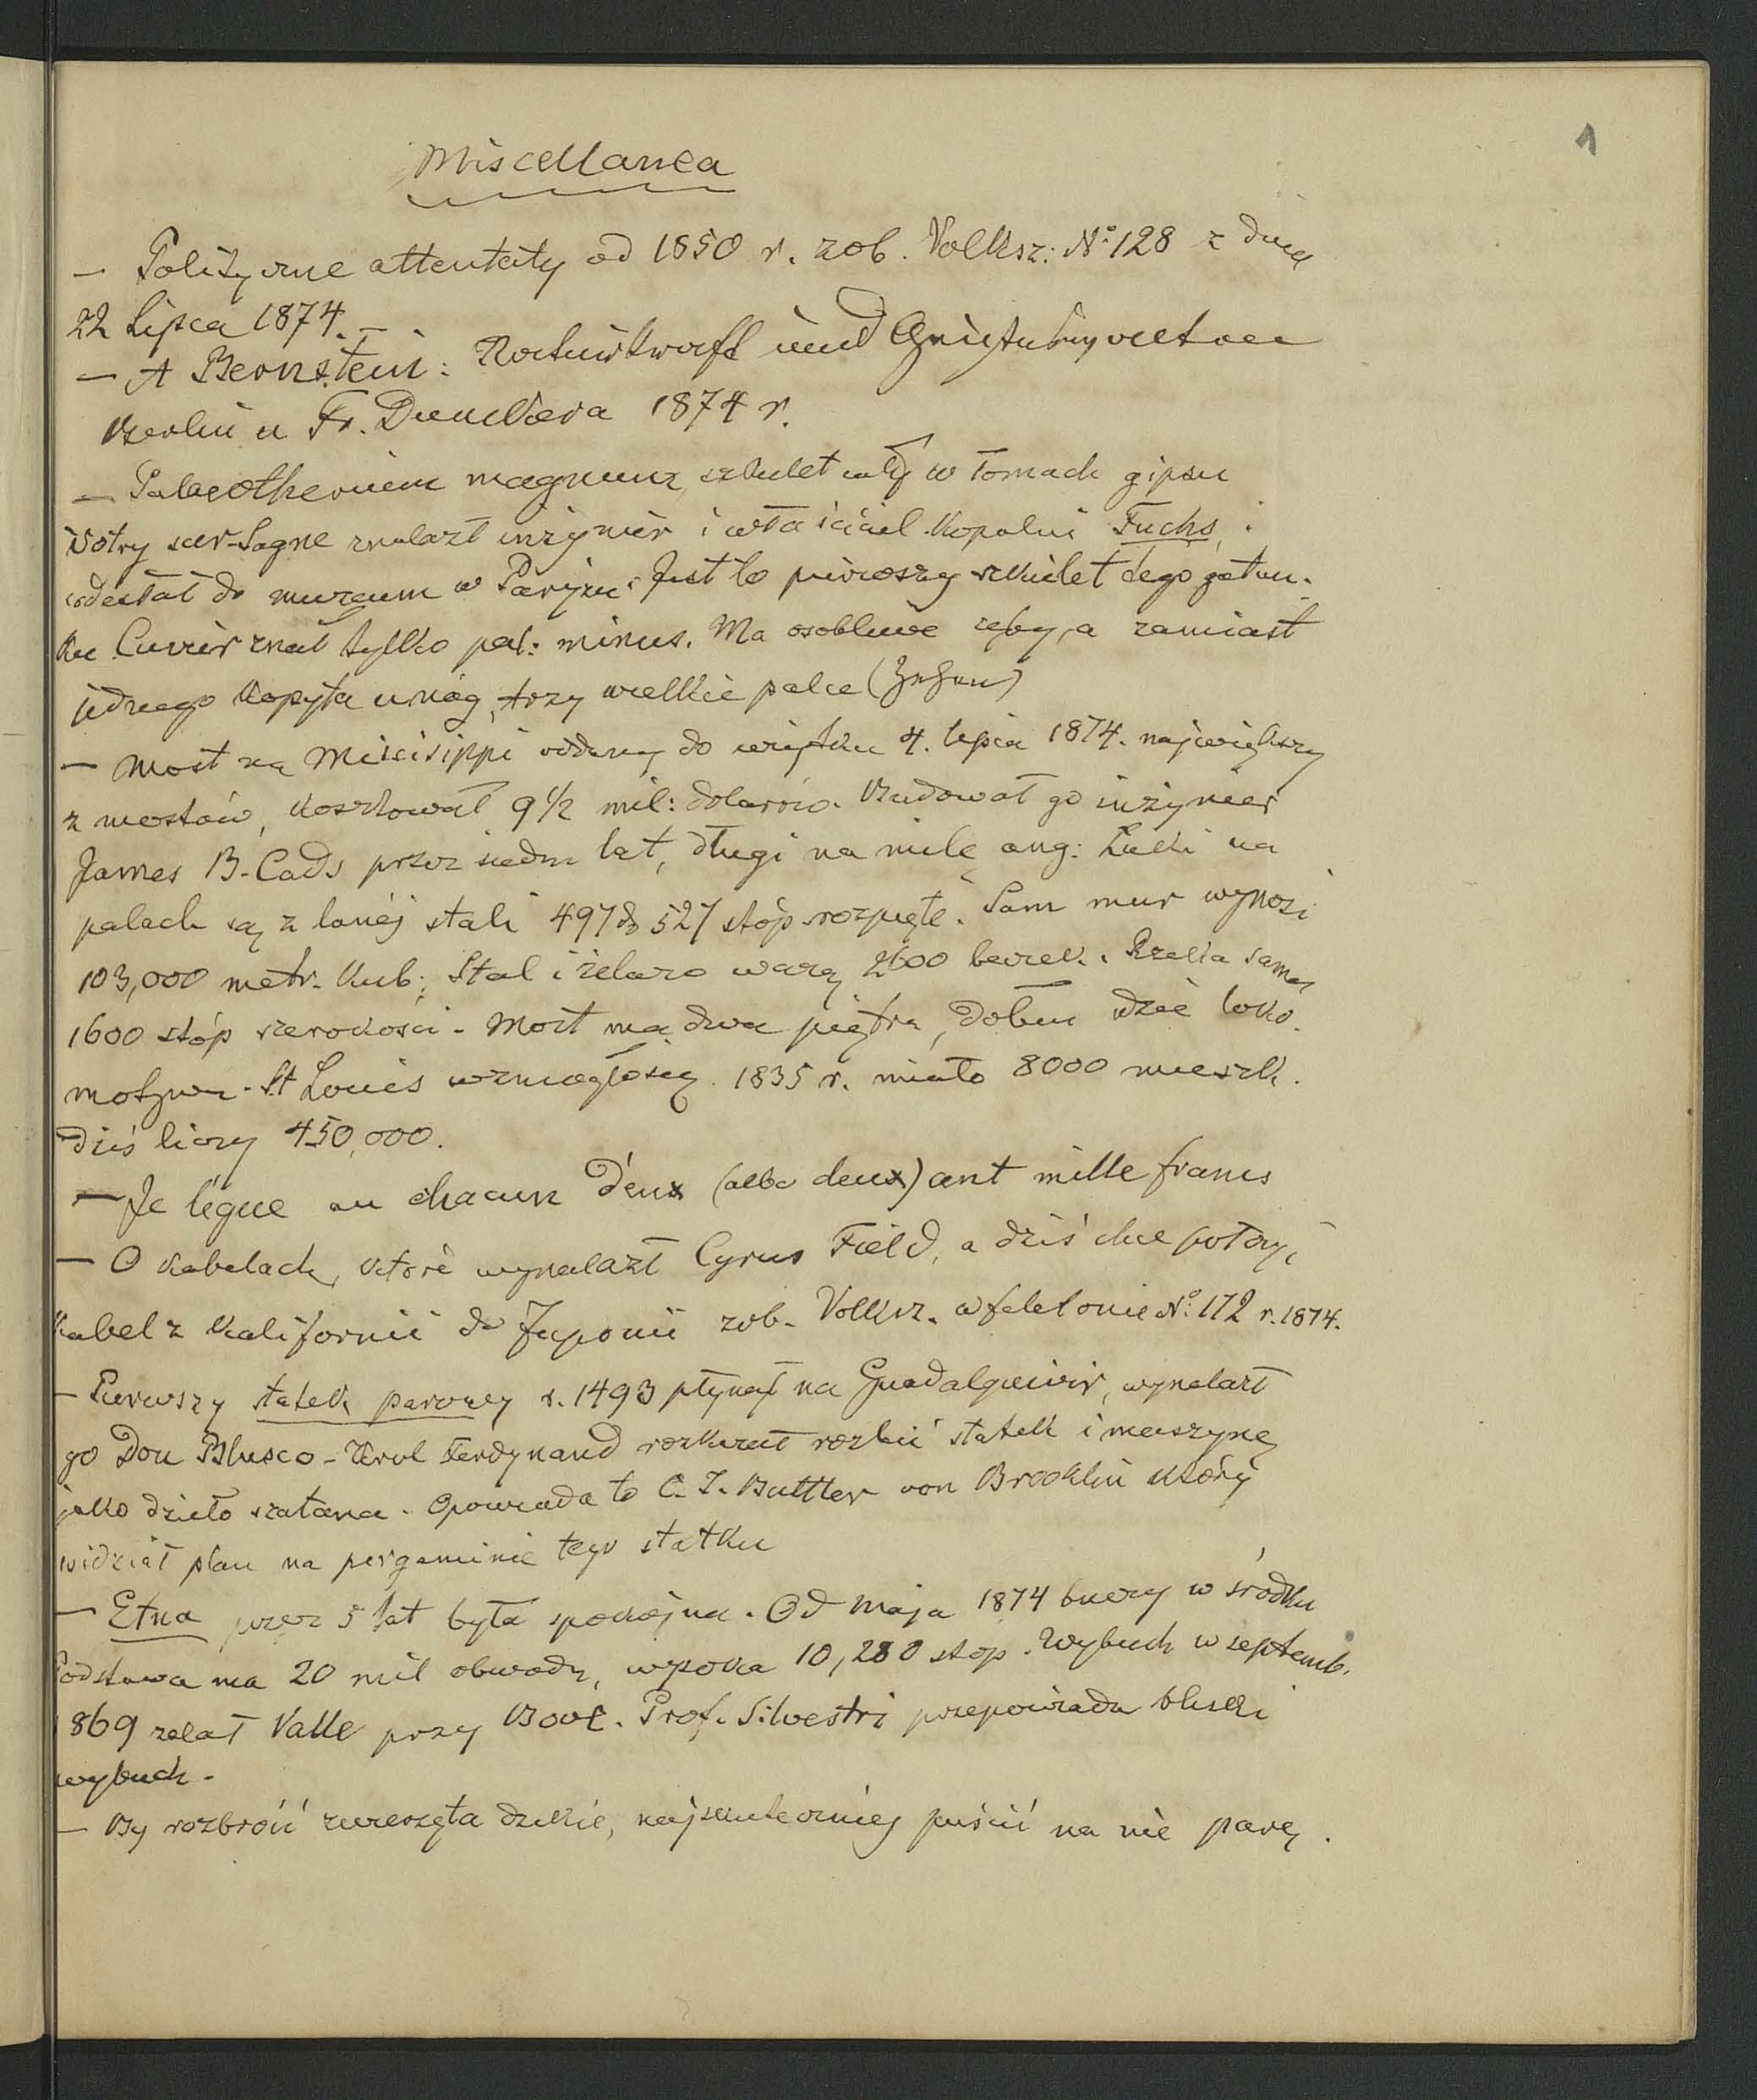 1
Miscellanea
— Polityczne attentaty od 1850 r. zob. Volksz: No 128 z dnia
22 Lipca 1874. —
— A Bernstein: Naturkraft und Geisteswalten
Berlin u Fr. Dunckera 1874 r.
— Palaeotherium magnum, szkielet cały w łomach gipsu
Vitry sur-Sagne znalazł inżynier i właściciel kopalni Fuchs, i
odesłał do muzeum w Paryżu. Jest to pierwszy szkielet tego gatun-
ku Cuvier znał tylko pal: minus. Ma osobliwe zęby, a zamiast
jednego kopyta u nóg, trzy wielkie palce (Zehen)
— Most na Miscisippi oddany do użytku 4. lipca 1874. największy
z mostów, kosztował 9 1/2 mil: dolarów. Budował go inżynier
James B. Cads przez siedm lat, długi na milę ang: Łuki na
palach są z lanéj stali 497 do 527 stóp rozpięte. Sam mur wynosi
103,000 metr. kub; Stal i żelazo ważą 2600 beczek. Rzeka sama
1600 stóp szerokości. Most ma dwa piętra, dołem idzie loko-
motywa. St Louis wzmogło się. 1835 r. miało 8000 mieszk.
dziś liczy 450,000.
— Je légue au chacun d'eux (albo deux) cent mille francs
— O kabelach, które wynalazł Cyrus Field, a dziś chce położyć
kabel z Kalifornii do Japonii zob. Volksz. w feletonie No: 172 r. 1874.
— Pierwszy statek parowy r. 1493 płynął na Guadalquivir, wynalazł
go Don Blusco - Król Ferdynand rozkazał rozbić statek i maszynę
jako dzieło szatana. Opowiada to C. T. Buttler von Brooklin który
widział plan na pergaminie tego statku
— Etna przez 5 lat była spokojna. Od Maja 1874 huczy w środku
Podstawa ma 20 mil obwodu, wysoka 10,280 stop. Wybuch w septemb.
1869 zalał Valle przy Bove. Prof. Silvestri przepowiada bliski
wybuch.
— By rozbroić zwierzęta dzikie, najskuteczniej puścić na nie parę.